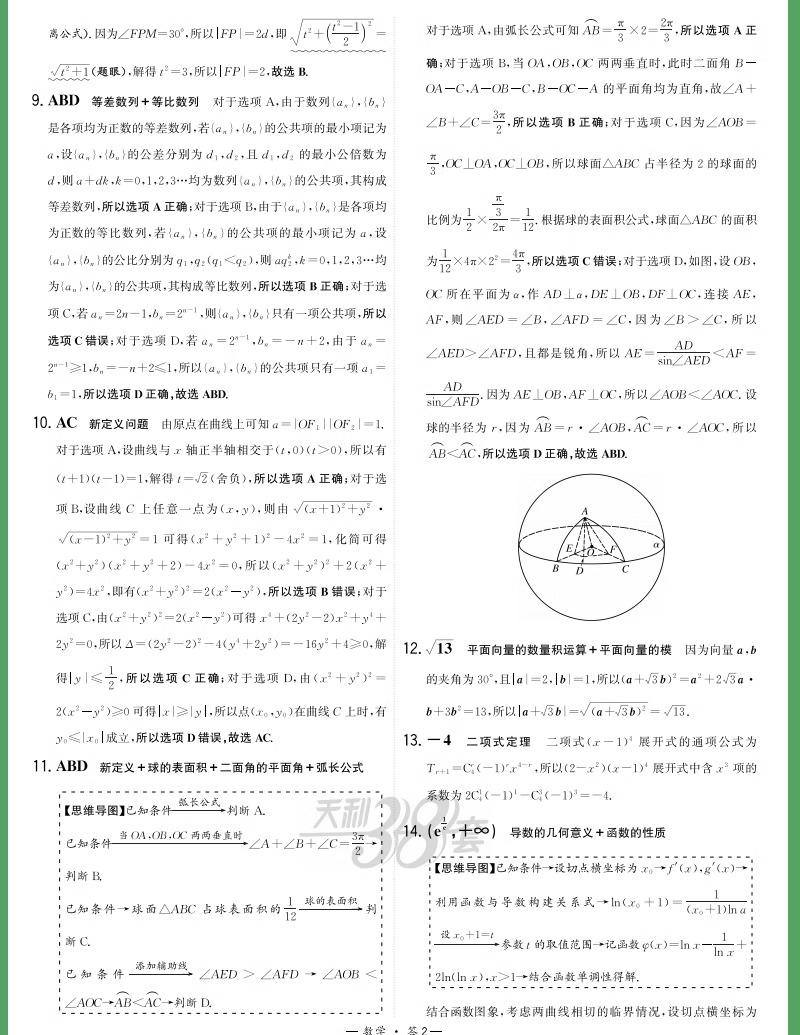 离公式).因为∠FPM=30°,所以|FP|=2d,即√(t²+((t²−1)/2)²)=
√(t²+1)(题眼),解得t²=3,所以|FP|=2,故选B.
9. ABD 等差数列+等比数列 对于选项A,由于数列{aₙ},{bₙ}
是各项均为正数的等差数列,若{aₙ},{bₙ}的公共项的最小项记为
a,设{aₙ},{bₙ}的公差分别为d₁,d₂,且d₁,d₂的最小公倍数为
d,则a+dk,k=0,1,2,3…均为数列{aₙ},{bₙ}的公共项,其构成
等差数列,所以选项A正确;对于选项B,由于{aₙ},{bₙ}是各项均
为正数的等比数列,若{aₙ},{bₙ}的公共项的最小项记为a,设
{aₙ},{bₙ}的公比分别为q₁,q₂(q₁<q₂),则aq₂ᵏ,k=0,1,2,3…均
为{aₙ},{bₙ}的公共项,其构成等比数列,所以选项B正确;对于选
项C,若aₙ=2n−1,bₙ=2ⁿ⁻¹,则{aₙ},{bₙ}只有一项公共项,所以
选项C错误;对于选项D,若aₙ=2ⁿ⁻¹,bₙ=−n+2,由于aₙ=
2ⁿ⁻¹≥1,bₙ=−n+2≤1,所以{aₙ},{bₙ}的公共项只有一项a₁=
b₁=1,所以选项D正确,故选ABD.
10. AC 新定义问题 由原点在曲线上可知a=|OF₁||OF₂|=1.
对于选项A,设曲线与x轴正半轴相交于(t,0)(t>0),所以有
(t+1)(t−1)=1,解得t=√2(舍负),所以选项A正确;对于选
项B,设曲线C上任意一点为(x,y),则由√((x+1)²+y²)·
√((x−1)²+y²)=1可得(x²+y²+1)²−4x²=1,化简可得
(x²+y²)(x²+y²+2)−4x²=0,所以(x²+y²)²+2(x²+
y²)=4x²,即有(x²+y²)²=2(x²−y²),所以选项B错误;对于
选项C,由(x²+y²)²=2(x²−y²)可得x⁴+(2y²−2)x²+y⁴+
2y²=0,所以Δ=(2y²−2)²−4(y⁴+2y²)=−16y²+4≥0,解
得|y|≤1/2,所以选项C正确;对于选项D,由(x²+y²)²=
2(x²−y²)≥0可得|x|≥|y|,所以点(x₀,y₀)在曲线C上时,有
y₀≤|x₀|成立,所以选项D错误,故选AC.
11. ABD 新定义+球的表面积+二面角的平面角+弧长公式
【思维导图】已知条件 弧长公式→判断A.
已知条件 当OA,OB,OC两两垂直时→∠A+∠B+∠C=3π/2→
判断B.
已知条件→球面△ABC占球表面积的1/12 球的表面积→判
断C.
已知条件 添加辅助线→∠AED>∠AFD→∠AOB<
∠AOC→A͡B<A͡C→判断D.
对于选项A,由弧长公式可知A͡B=π/3×2=2π/3,所以选项A正
确;对于选项B,当OA,OB,OC两两垂直时,此时二面角B−
OA−C,A−OB−C,B−OC−A的平面角均为直角,故∠A+
∠B+∠C=3π/2,所以选项B正确;对于选项C,因为∠AOB=
π/3,OC⊥OA,OC⊥OB,所以球面△ABC占半径为2的球面的
比例为1/2×(π/3)/(2π)=1/12.根据球的表面积公式,球面△ABC的面积
为1/12×4π×2²=4π/3,所以选项C错误;对于选项D,如图,设OB,
OC所在平面为α,作AD⊥α,DE⊥OB,DF⊥OC,连接AE,
AF,则∠AED=∠B,∠AFD=∠C,因为∠B>∠C,所以
∠AED>∠AFD,且都是锐角,所以AE=AD/sin∠AED<AF=
AD/sin∠AFD.因为AE⊥OB,AF⊥OC,所以∠AOB<∠AOC.设
球的半径为r,因为A͡B=r·∠AOB,A͡C=r·∠AOC,所以
A͡B<A͡C,所以选项D正确,故选ABD.
A
E O F α
B D C
12. √13 平面向量的数量积运算+平面向量的模 因为向量a,b
的夹角为30°,且|a|=2,|b|=1,所以(a+√3b)²=a²+2√3a·
b+3b²=13,所以|a+√3b|=√((a+√3b)²)=√13.
13. −4 二项式定理 二项式(x−1)⁴展开式的通项公式为
Tᵣ₊₁=C₄ʳ(−1)ʳx⁴⁻ʳ,所以(2−x²)(x−1)⁴展开式中含x³项的
系数为2C₄¹(−1)¹−C₄³(−1)³=−4.
14. (e^(1/e),+∞) 导数的几何意义+函数的性质
【思维导图】已知条件→设切点横坐标为x₀→f′(x),g′(x)→
利用函数与导数构建关系式→ln(x₀+1)=1/((x₀+1)ln a)
设x₀+1=t→参数t的取值范围→记函数φ(x)=ln x−1/ln x+
2ln(ln x),x>1→结合函数单调性得解.
结合函数图象,考虑两曲线相切的临界情况,设切点横坐标为
天利38套
— 数学·答2 —